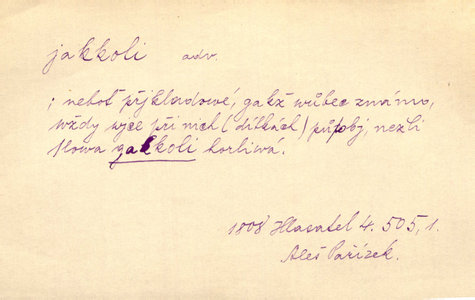 jakkoli adv.
; neboť přjkladowé, gakž wůbec známo,
wždy wjce při nich (dítkách) půſobj, nežli
ſlowa gakkoli horliwá.
1808 Hlasatel 4. 505, 1.
Aleš Pařízek.